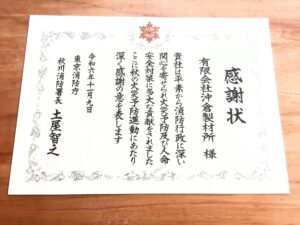 感謝状
有限会社沖倉製材所 様
貴社は平素から消防行政に深い
関心を寄せられ火災予防及び人命
安全対策に多大な貢献をされました
ここに秋の火災予防運動にあたり
深く感謝の意を表します
令和六年十一月九日
東京消防庁
秋川消防署長 土屋智之